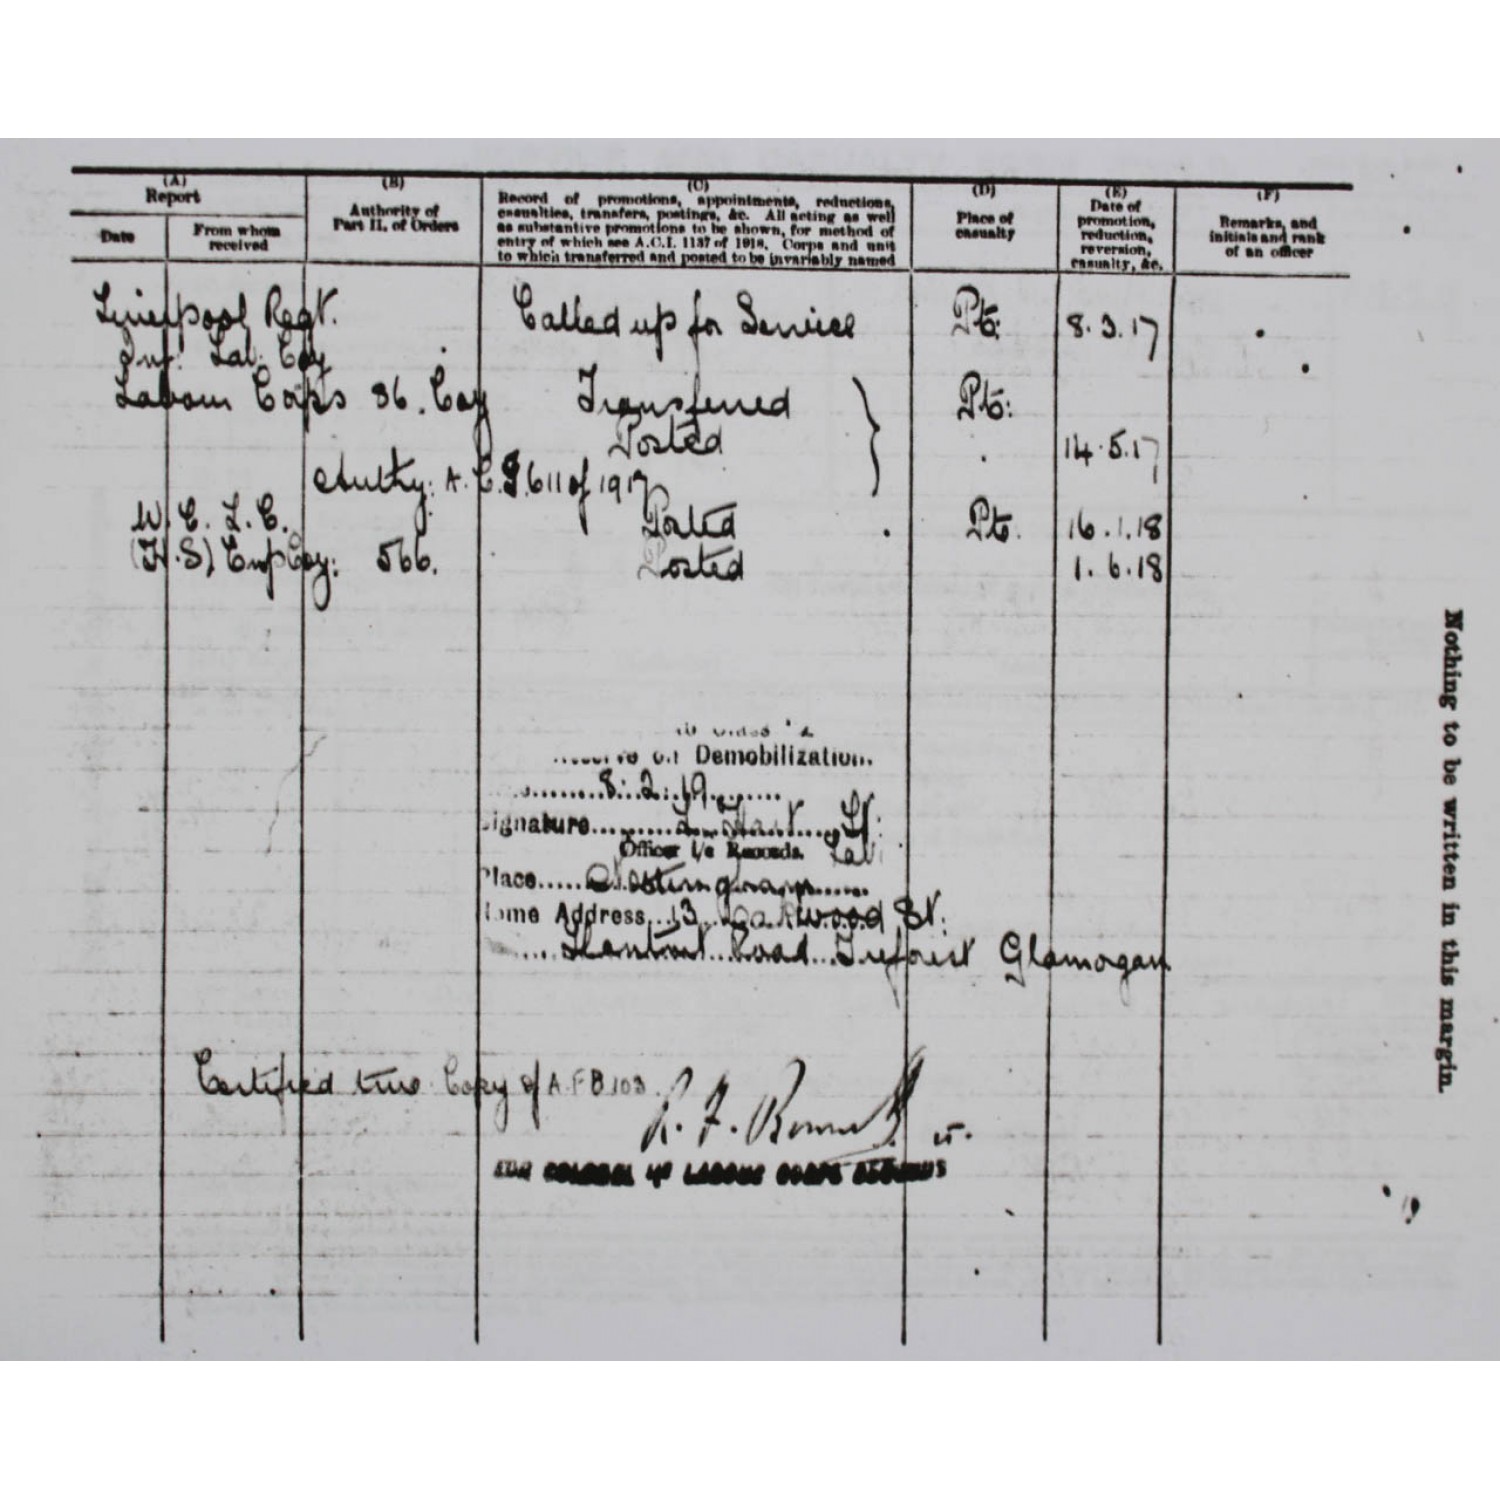 (A)
Report
Date
From whom
received
(B)
Authority of
Part II. of Orders
(C)
Record of promotions, appointments, reductions,
casualties, transfers, postings, &c. All acting as well
as substantive promotions to be shown, for method of
entry of which see A.C.I. 1137 of 1918. Corps and unit
to which transferred and posted to be invariably named
(D)
Place of
casualty
(E)
Date of
promotion,
reduction,
reversion,
casualty, &c.
(F)
Remarks, and
initials and rank
of an officer
Liverpool Regt. Called up for Service Pte: 8.3.17
Inf. Lab. Coy
Labour Corps 86. Coy Transferred Pte:
Posted 14.5.17
Authy: A.C.I. 611 of 1917
W. C. L. C. Posted Pte. 16.1.18
(H.S) Emp Coy: 566. Posted 1.6.18
Demobilization.
8.2.19
Signature Lt:
Officer i/c Records. Lab:
Place Nottingham
Home Address 13 St:
Road Treforest Glamogan
Certified true Copy of A.F.B 103.
R. F. Lt.
FOR COLONEL I/C LABOUR CORPS RECORDS
Nothing to be written in this margin.